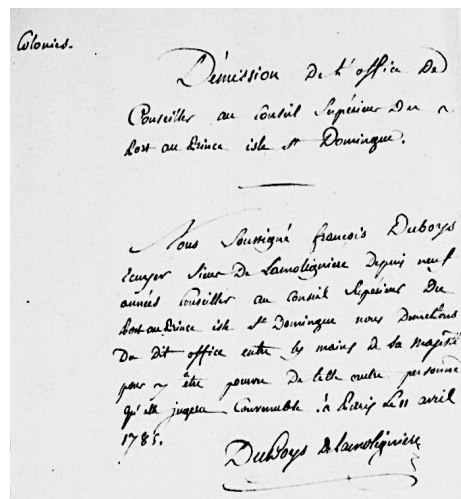 Colonies.
Démission de l'office De
Conseiller au Conseil Supérieur Du
Port au Prince isle St Domingue.
Nous Soussigné françois Duboys
Ecuyer Sieur De Lamolignière Depuis neuf
années Conseiller au Conseil Supérieur Du
Port au Prince isle St Domingue nous Demettons
Du dit office entre les mains de sa majesté
pour y être pourvu de telle autre personne
qu'elle jugera Convenable. à Paris le 11 avril
1785.
DuBoys de lamolignière